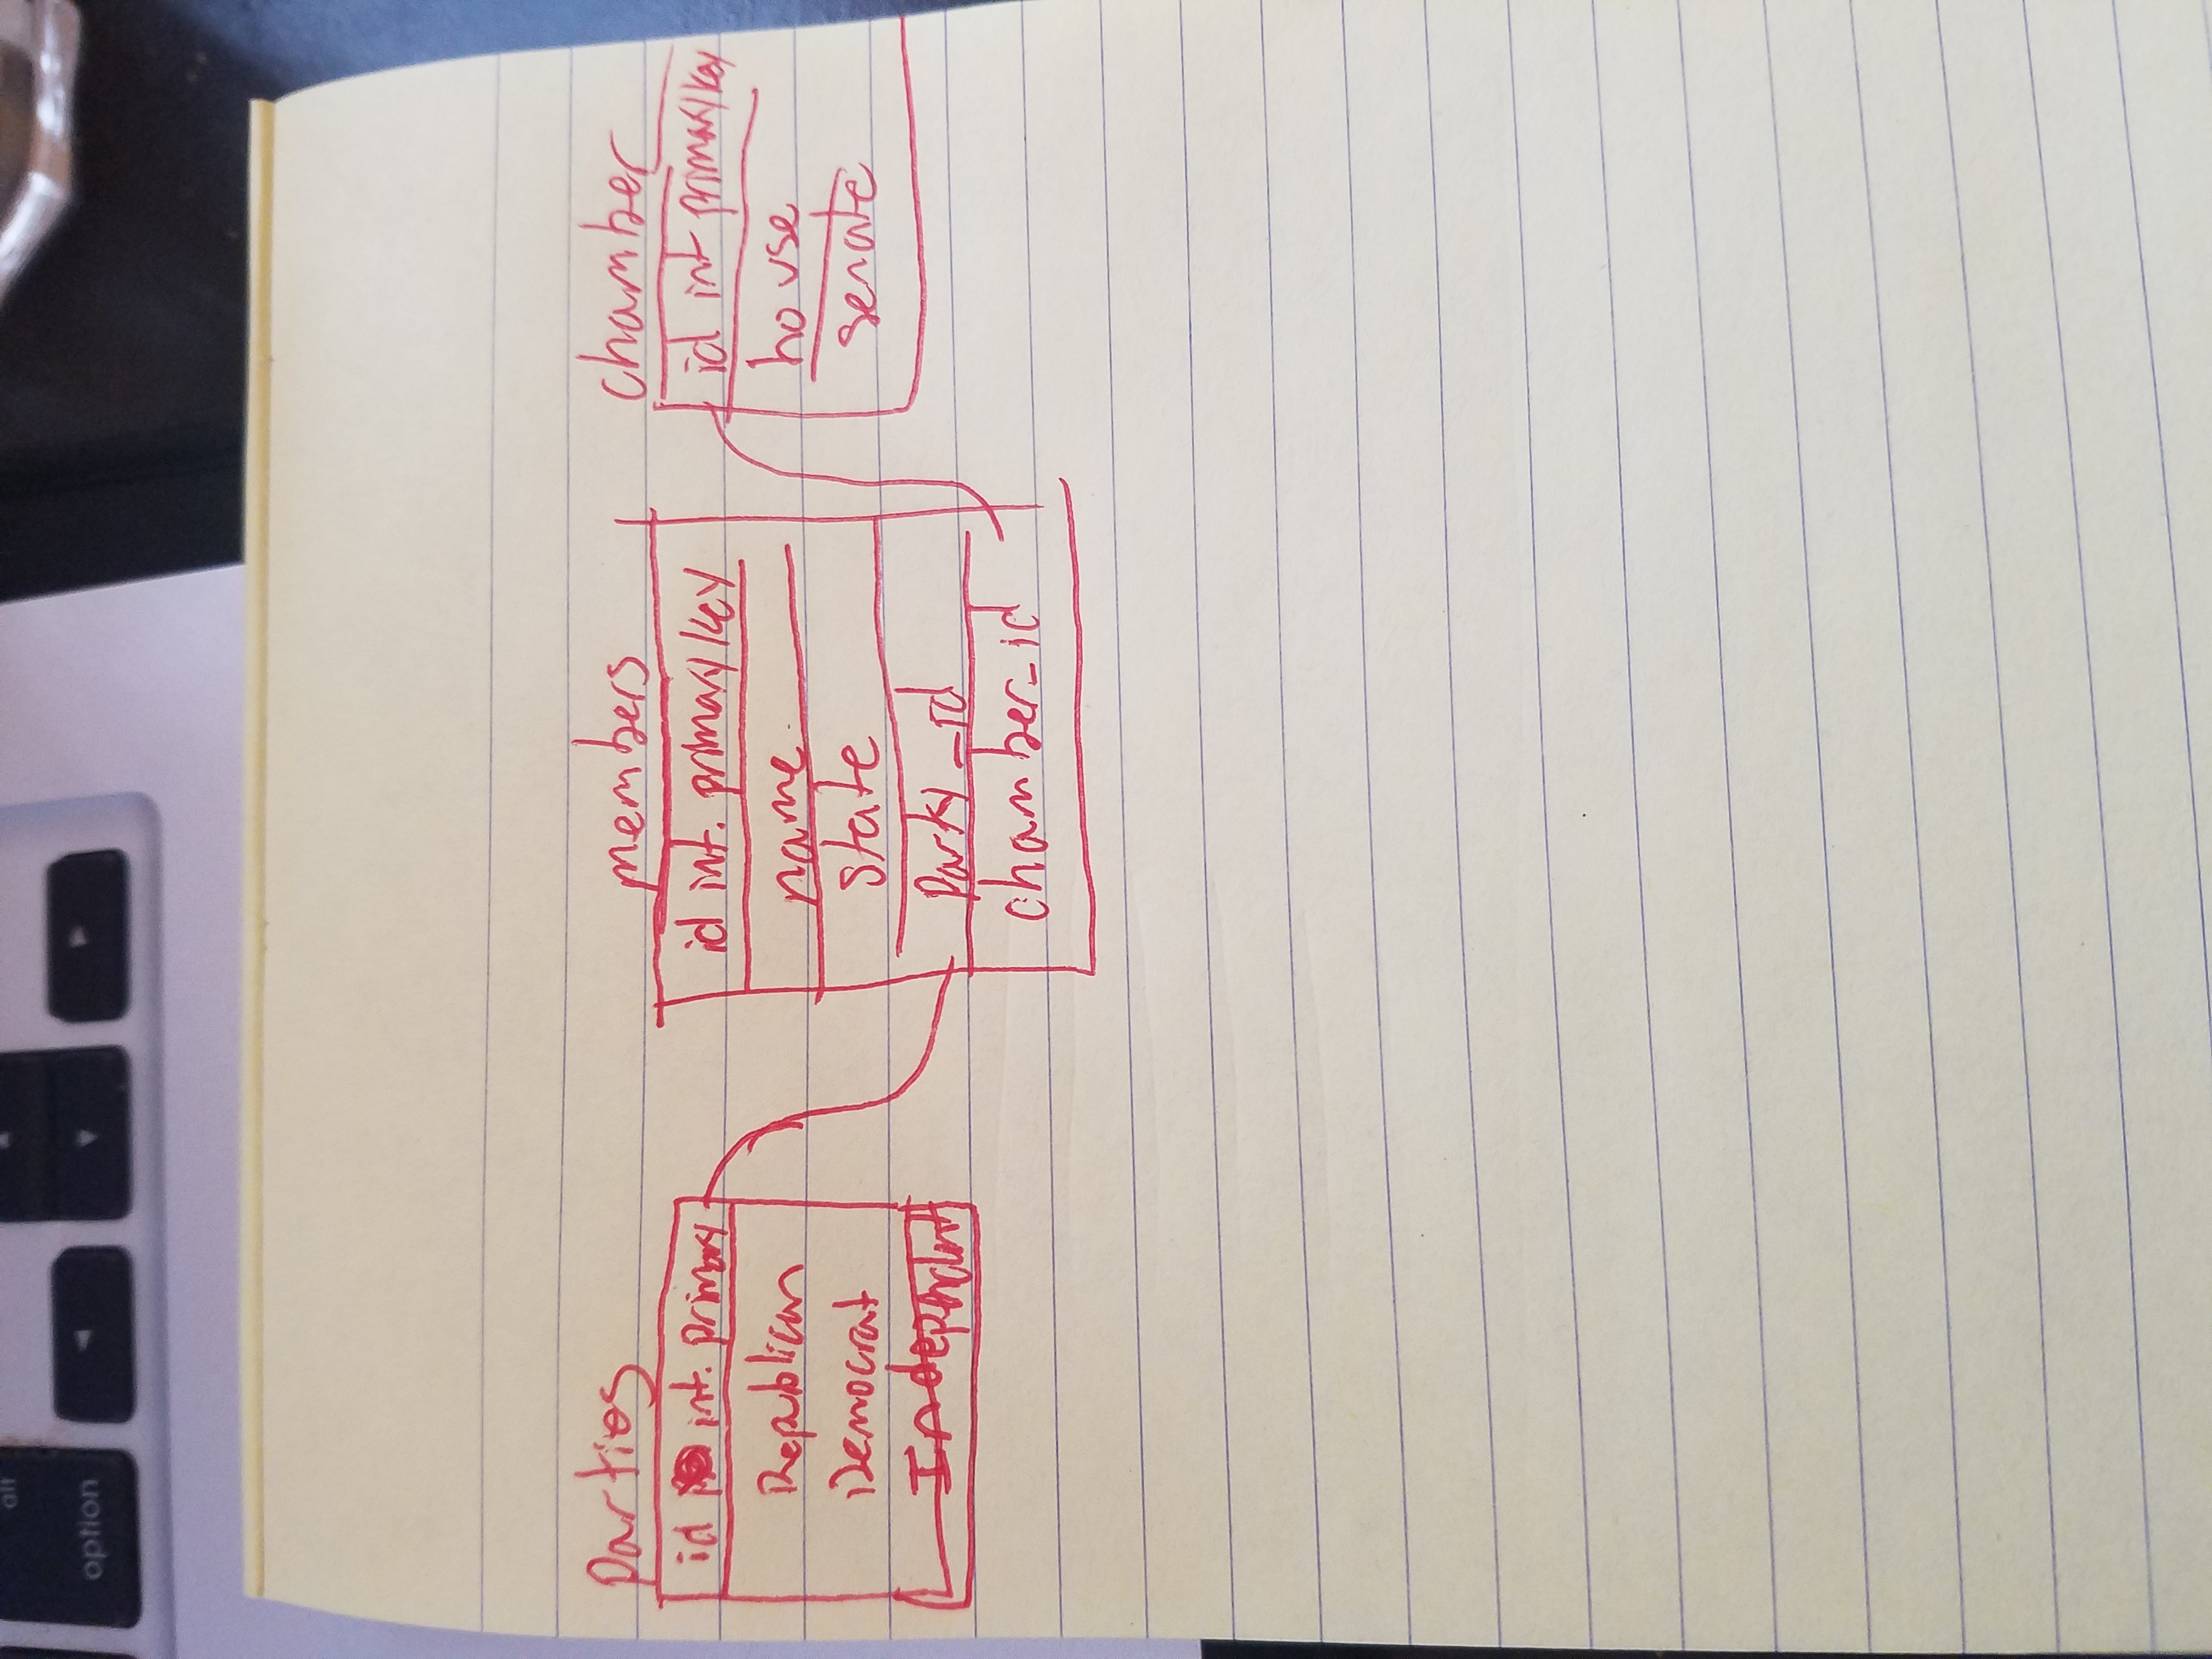 alt
option
parties
id int. primary
Republican
Democrat
Independent
members
id int. primary key
name
state
party_id
chamber_id
chamber
id int primary key
house
senate